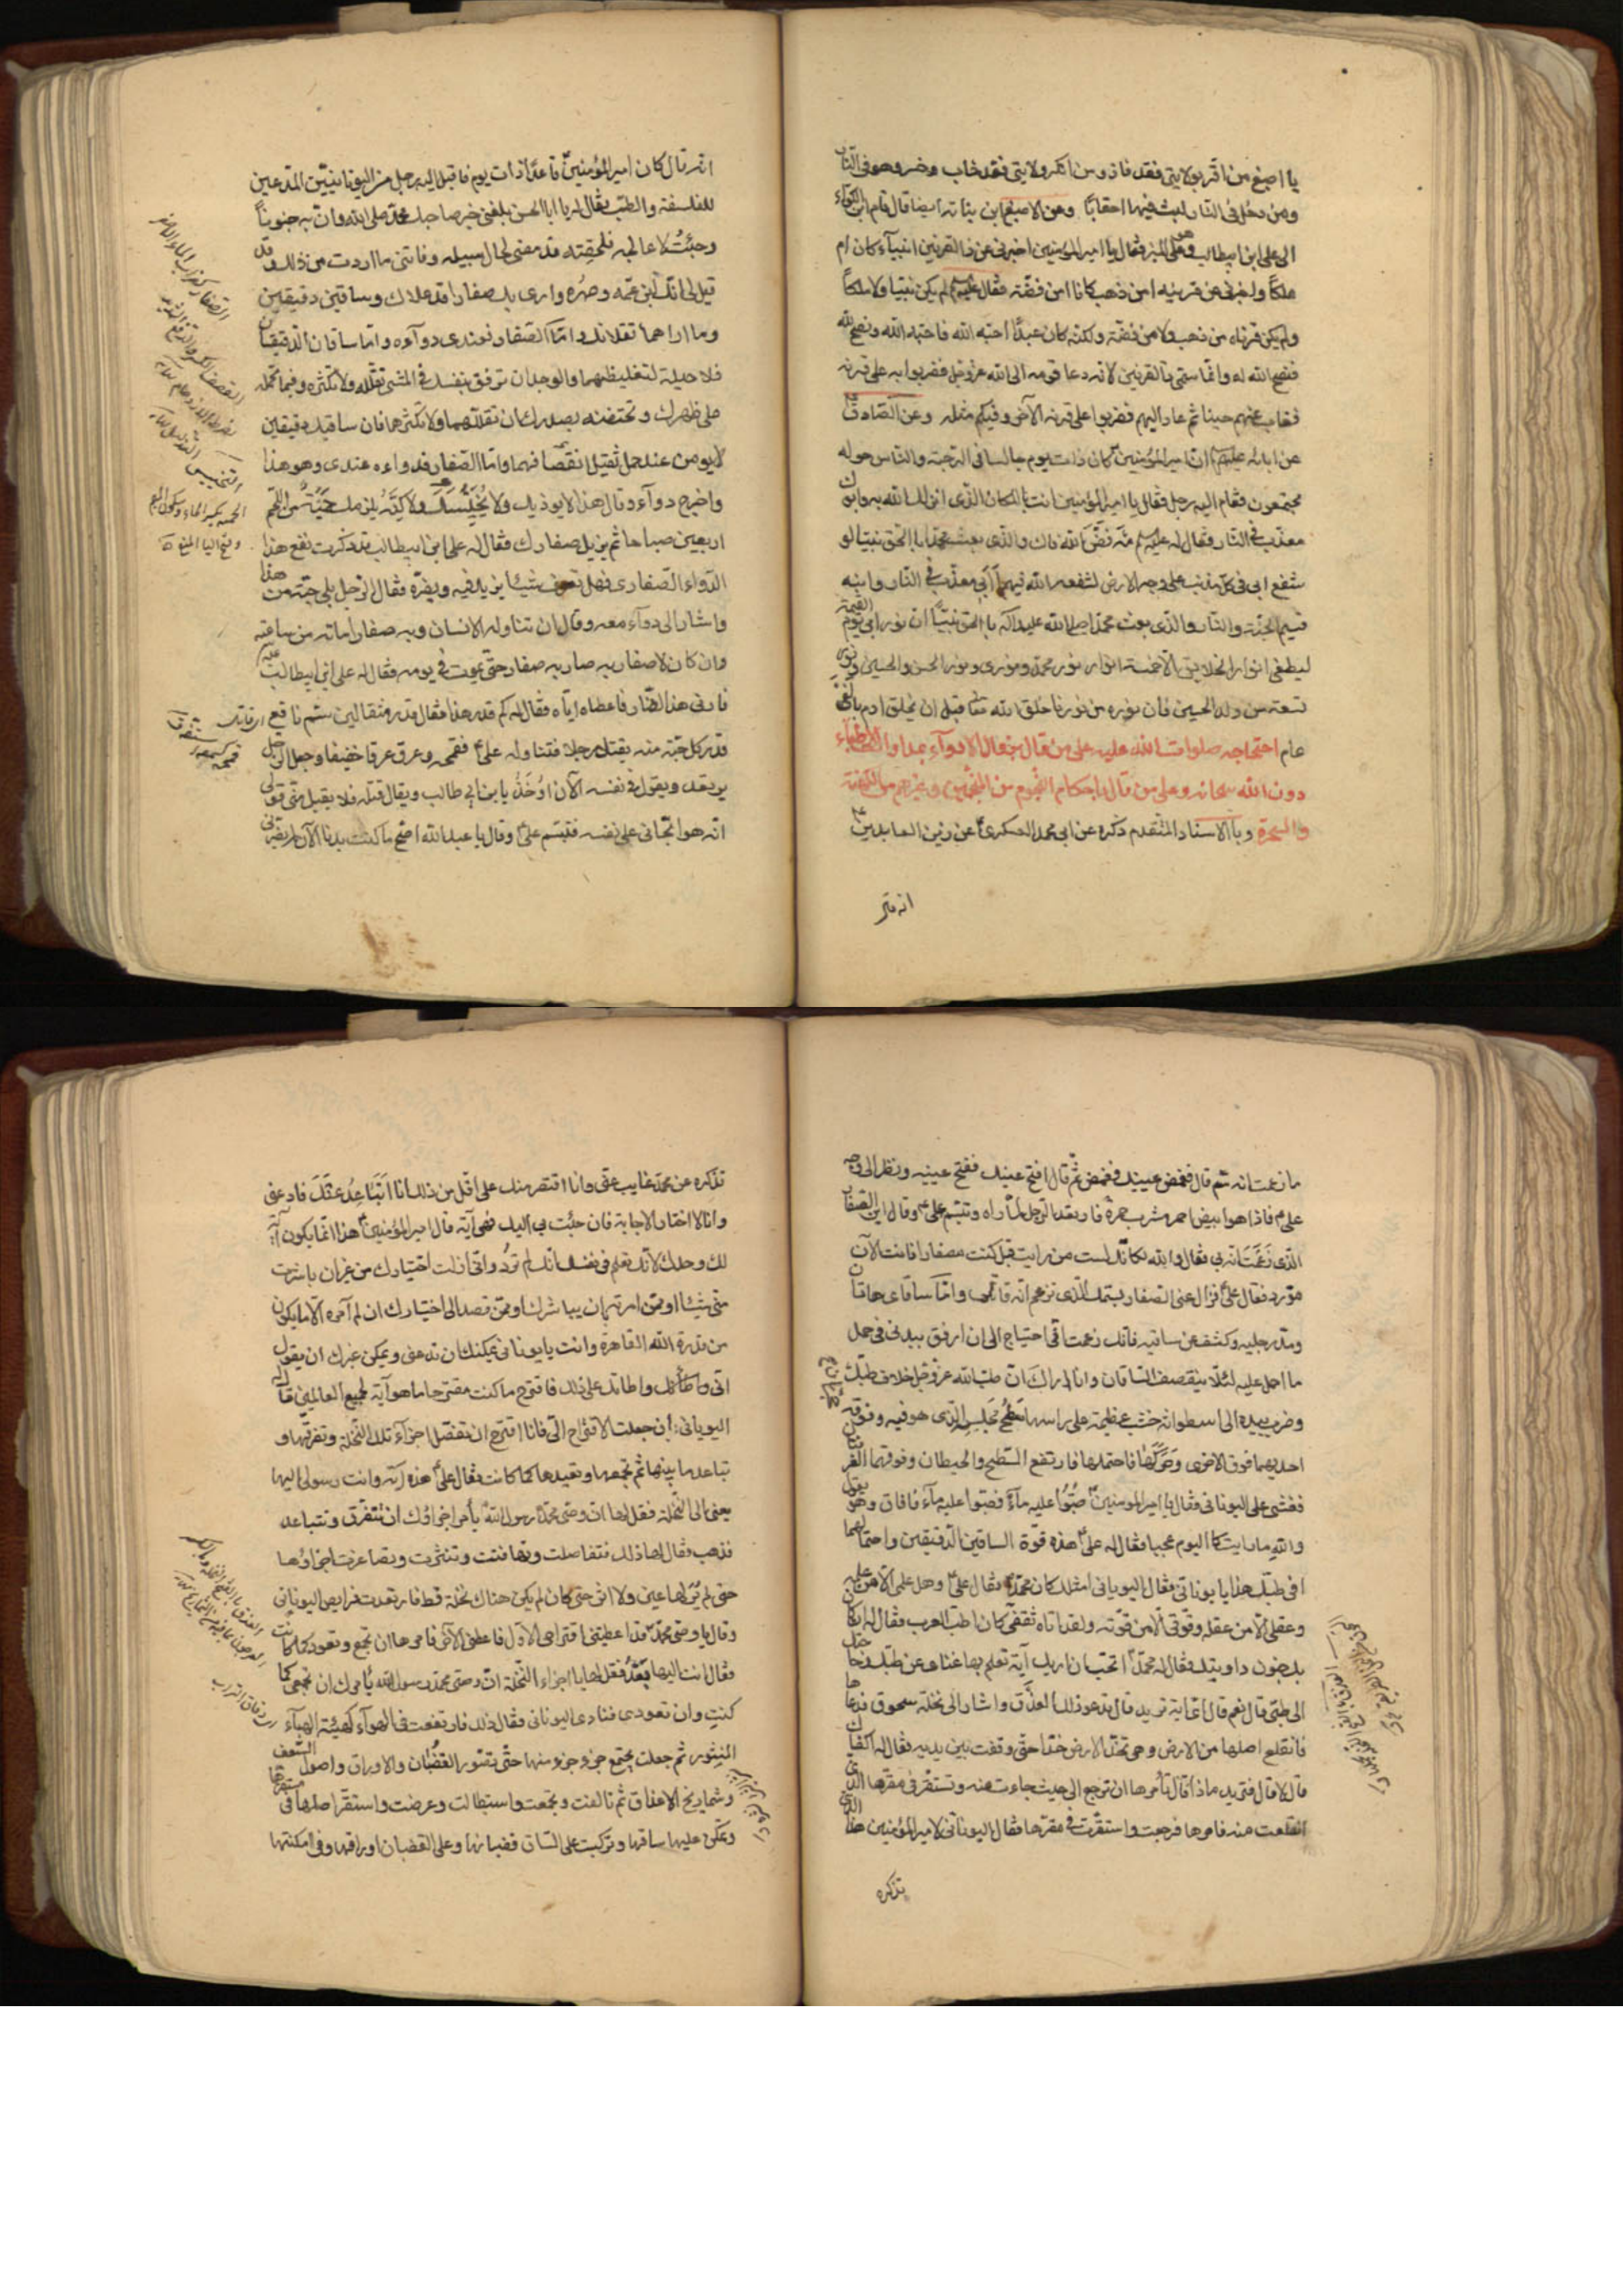 يا اصبغ من اقر بولايتي فقد فاز ومن انكر ولايتي فقد خاب وخسر وهوى في النار
ومن دخل في النار لبث فيها احقابا وعن الاصبغ ابن نباته ايضا قال قام ابن الكواء
الى علي ابن ابيطالب وهو على المنبر فقال يا امير المؤمنين اخبرني عن ذا القرنين انبياء كان ام
ملكا واخبرني عن قرنيه امن ذهب كانا امن فضة فقال عليه السلم لم يكن نبيا ولا ملكا
ولم يكن قرناه من ذهب ولا من فضة ولكنه كان عبدا احب الله فاحبه الله ونصح لله
فنصح الله له وانما سمي ذا القرنين لانه دعا قومه الى الله عز وجل فضربوه على قرنه
فغاب عنهم حينا ثم عاد اليهم فضربوا على قرنه الآخر وفيكم مثله وعن الصادق
عن ابائه عليهم ان امير المؤمنين كان ذات يوم جالسا في الرحبة والناس حوله
مجتمعون فقام اليه رجل فقال يا امير المؤمنين انت بالمكان الذي انزلك الله به وابوك
معذب في النار فقال له عليه سلم مه فض الله فاك والذي بعث محمدا بالحق نبيا لو
شفع ابي في كل مذنب على وجه الارض لشفعه الله فيهم أبي معذب في النار وابنه
قسيم الجنة والنار والذي بعث محمدا صلى الله عليه واله بالحق نبيا ان نور ابي يوم القيمة
ليطفي انوار الخلايق الا خمسة انوار نور محمد ونوري ونور الحسن والحسين ونور
تسعة من ولد الحسين فان نوره من نورنا خلقه الله تعا قبل ان يخلق ادم بالفي
عام احتجاجه صلوات الله عليه على من قال بزوال الادواء بمداواة الاطباء
دون الله سبحانه وعلى من قال باحكام النجوم من المنجمين وغيرهم من الكهنة
والسحرة وبالاسناد المتقدم ذكره عن ابي محمد العسكري عن زين العابدين
انه قال
انه قال كان امير المؤمنين قاعدا ذات يوم فاقبل اليه رجل من اليونانيين المدعين
للفلسفة والطب فقال له يا ابا الحسن بلغني خبر صاحبك محمد صلى الله وان به جنونا
وجئت لاعالجه فلحقته قد مضى لحال سبيله وفاتني ما اردت من ذلك وقد
قيل لي انك ابن عمه وصهره وارى بك صفارا قد علاك وساقين دقيقين
وما اراهما تقلانك واما الصفار فعندي دوآءه واما ساقان الدقيقان
فلا حيلة لتغليظهما والوجه ان ترفق بنفسك في المشي تقلله ولا تكثره وفيما تحمله
على ظهرك وتحتضنه بصدرك ان تقللهما ولا تكثرهما فان ساقيك دقيقين
لا يومن عند حمل ثقيل انقصافهما واما الصفار فدواءه عندي وهو هذا
واخرج دوآء وقال هذا لا يوذيك ولا يخيسك ولكنه يلزمك حمية من اللحم
اربعين صباحا ثم يزيل صفارك فقال له علي ابن ابيطالب قد ذكرت نفع هذا
الدواء الصفاري فهل تعرف شيئا يزيد فيه ويضره فقال الرجل بلى حبة من هذا
واشار الى دوآء معه وقال ان تناوله الانسان وبه صفار اماته من ساعته
وان كان لا صفار به صار به صفار حتى يموت في يومه فقال له علي ابن ابيطالب عليه
فارني هذا الضار فاعطاه اياه فقال له كم قدر هذا فقال قدر مثقالين سم ناقع
قدر كل حبة منه يقتل رجلا فتناوله علي فقمحه وعرق عرقا خفيفا وجعل الرجل
يرتعد ويقول في نفسه الآن اوخذ يا بن ابي طالب ويقال قتله فلا يقبل مني قولي
انه هو الجاني على نفسه فتبسم علي وقال يا عبد الله اصح ما كنت بدنا الآن لم يضرني
ما زعمت انه سم قال فغمض عينيك فغمض ثم قال افتح عينيك ففتح عينيه ونظر الى وجه
علي فاذا هو ابيض احمر مشرب حمرة فارتعد الرجل لما رآه وتبسم علي وقال اين الصفار
الذي زعمت انه بي فقال والله لكانك لست من رايت قبل كنت مصفارا فانت الآن
مورد فقال علي فزال عني الصفار بسمك الذي تزعم انه قاتلي واما ساقاي هاتان
ومد رجليه وكشف عن ساقيه فانك زعمت اني احتياج الى ان ارفق ببدني في حمل
ما احمل عليه لئلا ينقصف الساقان وانا اراك ان طب الله عز وجل خلاف طبك
وضرب بيده الى اسطوانة خشب عظيمة على راسها سطح مجلسه الذي هو فيه وفوقه
احديهما فوق الاخرى وحركها فاحتملها فارتفع السطح والحيطان وفوقهما الغرفتان
فغشي على اليوناني فقال يا امير المومنين صبوا عليه مآء فصبوا عليه مآء فافاق وهو يقول
والله ما رايت كاليوم عجبا فقال له علي هذه قوة الساقين الدقيقين واحتمالهما
افي طبك هذا يا يوناني فقال اليوناني امثلك كان محمد فقال علي وهل علمي الا من علمه
وعقلي الا من عقله وقوتي الا من قوته ولقد اتاه ثقفي كان اطب العرب فقال له ان كان
بك جنون داويتك فقال له محمد اتحب ان اريك آية تعلم بها غناي عن طبك وحاجتك
الى طبي قال نعم قال اي اية تريد قال تدعو ذلك العذق واشار الى نخلة سحوق فدعاها
فانقلع اصلها من الارض وهي تخد الارض خدا حتى وقفت بين يديه فقال له اكفاك
قال لا قال فتريد ماذا قال تأمرها ان ترجع الى حيث جاءت منه وتستقر في مقرها الذي
انقلعت منه فامرها فرجعت واستقرت في مقرها فقال اليوناني لامير المؤمنين هذا الذي
تذكره
تذكره عن محمد غايب عني وانا اقتصر منك على اقل من ذلك انا اتباعد عنك فادعني
وانا لا اختار الاجابة فان جئت بي اليك فهي آية قال امير المؤمنين هذا انما يكون آية
لك وحدك لانك تعلم في نفسك انك لم ترد واني ازلت اختيارك من غير ان باشرت
مني شيئا او ممن امرته بان يباشرك او ممن قصد الى اختيارك ان لم آمره الا ما يكون
من قدرة الله القاهرة وانت يا يوناني يمكنك ان تدعي ويمكن غيرك ان يقول
اني واطأتك على ذلك فاقترح ما كنت مقترحا ما هو آية لجميع العالمين قال له
اليوناني ان جعلت الاقتراح الي فانا اقترح ان تفصل اجزآء تلك النخلة وتفرقها و
تباعد ما بينها ثم تجمعها وتعيدها كما كانت فقال علي هذه آية وانت رسولي اليها
يعني الى النخلة فقل لها ان وصي محمد رسول الله يأمر اجزاؤك ان تتفرق وتتباعد
فذهب فقال لها ذلك فتفاصلت وتهافتت وتنثرت وتصاغرت اجزاؤها
حتى لم ير لها عين ولا اثر حتى كان لم يكن هناك نخلة قط فارتعدت فرايص اليوناني
وقال يا وصي محمد قد اعطيتني اقتراحي الاول فاعطني الآخر فامرها ان تجمع وتعود كما كانت
فقال انت اليها فعد فقل لها يا اجزاء النخلة ان وصي محمد رسول الله يأمرك ان تجتمعي كما
كنت وان تعودي فنادى اليوناني فقال ذلك فارتفعت في الهوآء كهيئة الهبآء
المنثور ثم جعلت تجتمع جزو جزو منها حتى تصور القضبان والاوراق واصول السعف
وشماريخ الاعذاق ثم تالفت وتجمعت واستطالت وعرضت واستقر اصلها في مقرها
وتمكن عليها ساقها وتركبت على الساق قضبانها وعلى القضبان اوراقها وفي امكنتها